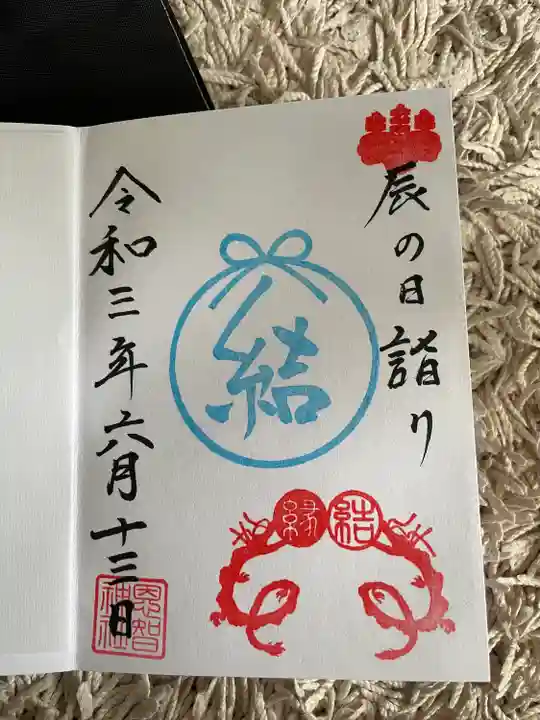 辰の日詣り
結
縁結
令和三年六月十三日
恩智神社